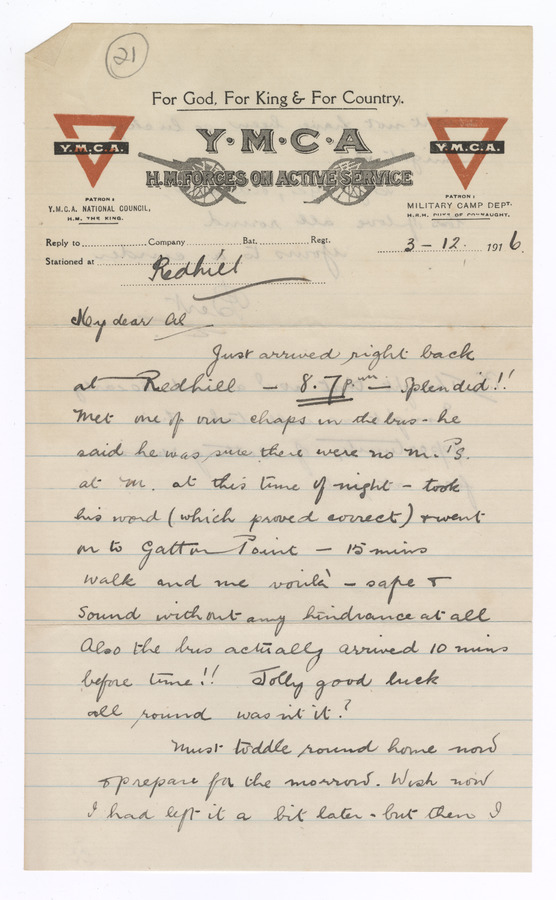 21
For God, For King & For Country.
Y·M·C·A
H.M. FORCES ON ACTIVE SERVICE
Y.M.C.A.
Y.M.C.A.
PATRON:
Y.M.C.A. NATIONAL COUNCIL,
H.M. THE KING.
PATRON:
MILITARY CAMP DEPT.
H.R.H. DUKE OF CONNAUGHT.
Reply to Company Bat. Regt. 3-12. 1916
Stationed at Redhill
My dear Al
Just arrived right back
at Redhill - 8.7 p.m - Splendid!!
Met one of our chaps in the bus - he
said he was sure there were no M.Ps.
at M. at this time of night - took
his word (which proved correct) & went
on to Gatton Point - 15 mins
walk and me voilà - safe &
Sound without any hindrance at all
Also the bus actually arrived 10 mins
before time!! Jolly good luck
all round wasn't it?
Must toddle round home now
& prepare for the morrow. Wish now
I had left it a bit later - but then I